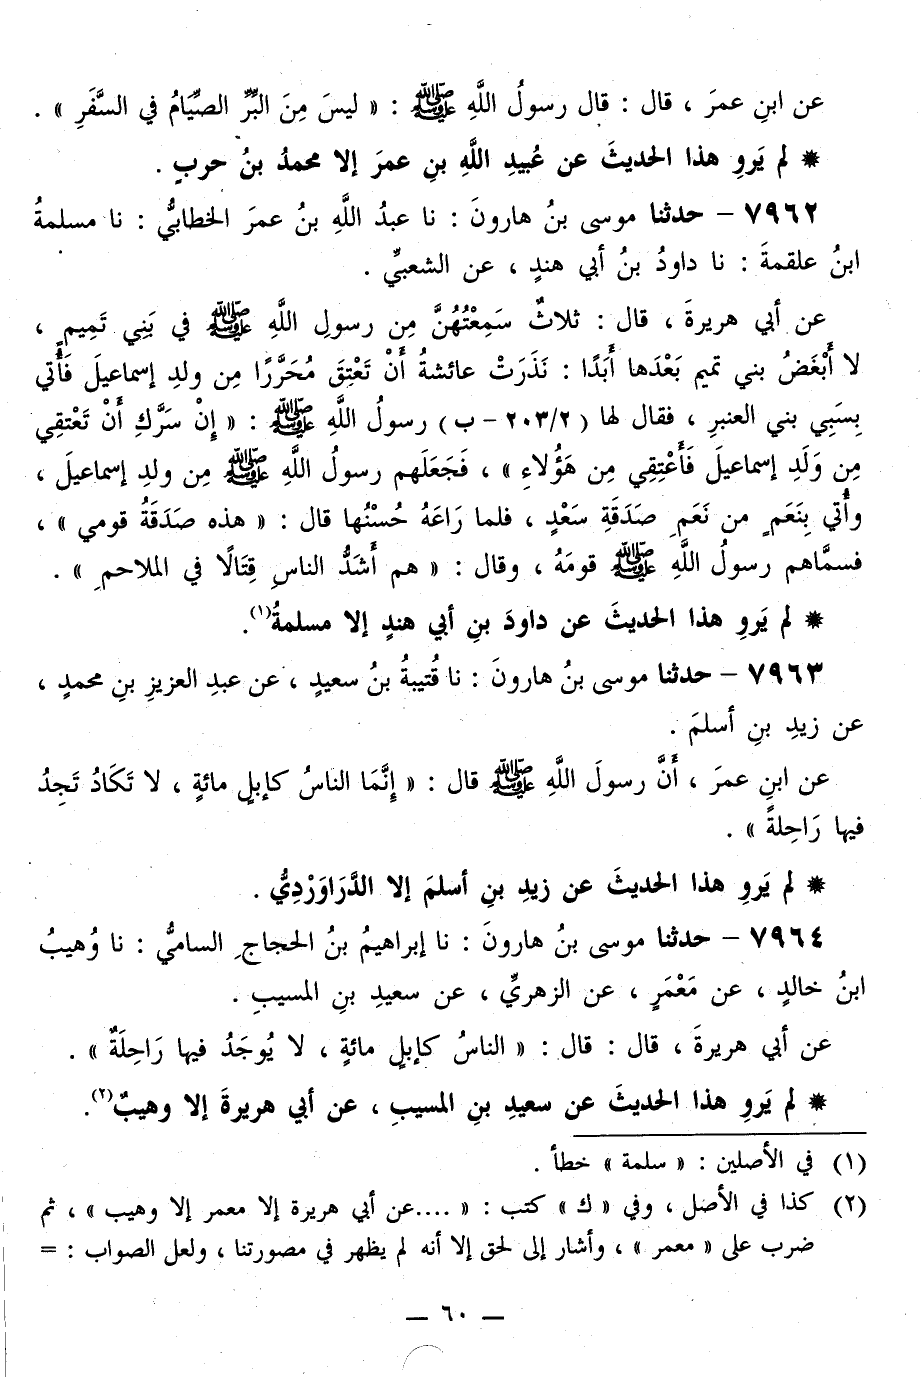 عن ابنِ عمرَ ، قال : قال رسولُ اللَّهِ ﷺ : « ليسَ مِنَ البِرِّ الصِّيَامُ في السَّفَرِ » .
* لم يَروِ هذا الحديثَ عن عُبيدِ اللَّهِ بنِ عمرَ إلا محمدُ بنُ حربٍ .
٧٩٦٢ – حدثنا موسى بنُ هارونَ : نا عبدُ اللَّهِ بنُ عمرَ الخطابيُّ : نا مسلمةُ
ابنُ علقمةَ : نا داودُ بنُ أبي هندٍ ، عن الشعبيِّ .
عن أبي هريرةَ ، قال : ثلاثٌ سَمِعْتُهُنَّ مِن رسولِ اللَّهِ ﷺ في بَنِي تَمِيمٍ ،
لا أَبْغَضُ بني تميم بَعْدَها أَبَدًا : نَذَرَتْ عائشةُ أَنْ تَعْتِقَ مُحَرَّرًا مِن ولدِ إسماعيلَ فَأُتي
بِسَبِي بني العنبرِ ، فقال لها ( ٢٠٣/٢ – ب ) رسولُ اللَّهِ ﷺ : « إِنْ سَرَّكِ أَنْ تَعْتِقي
مِن وَلَدِ إسماعيلَ فَأَعْتِقِي مِن هَؤُلاءِ » ، فَجَعَلَهم رسولُ اللَّهِ ﷺ مِن ولدِ إسماعيلَ ،
وأُتي بِنَعَمٍ من نَعَمِ صَدَقَةِ سَعْدٍ ، فلما رَاعَهُ حُسْنُها قال : « هذه صَدَقَةُ قومي » ،
فسمَّاهم رسولُ اللَّهِ ﷺ قومَهُ ، وقال : « هم أَشَدُّ الناسِ قِتَالًا في الملاحمِ » .
* لم يَروِ هذا الحديثَ عن داودَ بنِ أبي هندٍ إلا مسلمةُ(١).
٧٩٦٣ – حدثنا موسى بنُ هارونَ : نا قُتيبةُ بنُ سعيدٍ ، عن عبدِ العزيزِ بنِ محمدٍ ،
عن زيدِ بنِ أسلمَ .
عن ابنِ عمرَ ، أَنَّ رسولَ اللَّهِ ﷺ قال : « إِنَّمَا الناسُ كإبلٍ مائةٍ ، لا تَكَادُ تَجِدُ
فيها رَاحِلةً » .
* لم يَروِ هذا الحديثَ عن زيدِ بنِ أسلمَ إلا الدَّرَاوَرْدِيُّ .
٧٩٦٤ – حدثنا موسى بنُ هارونَ : نا إبراهيمُ بنُ الحجاجِ الساميُّ : نا وُهيبُ
ابنُ خالدٍ ، عن مَعْمَرٍ ، عن الزهريِّ ، عن سعيدِ بنِ المسيبِ .
عن أبي هريرةَ ، قال : قال : « الناسُ كإبلٍ مائةٍ ، لا يُوجَدُ فيها رَاحِلَةٌ » .
* لم يَروِ هذا الحديثَ عن سعيدِ بنِ المسيبِ ، عن أبي هريرةَ إلا وهيبٌ(٢).
(١) في الأصلين : « سلمة » خطأ .
(٢) كذا في الأصل ، وفي « ك » كتب : « ....عن أبي هريرة إلا معمر إلا وهيب » ، ثم
ضرب على « معمر » ، وأشار إلى لحق إلا أنه لم يظهر في مصورتنا ، ولعل الصواب : =
— ٦٠ —